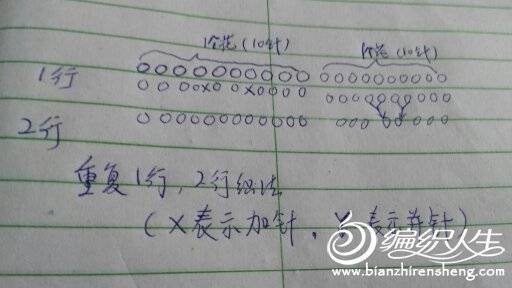 1个花(10针) 1个花(10针)
1行 OOOOOOOOOO OOOOOOOOOO
OOOOXOOXOOOO OOOOOOOOOO
2行 OOOOOOOOOOOO OOOOOOOOOO
重复1行,2行织法
(X表示加针、Y表示并针)
编织人生
www.bianzhirensheng.com